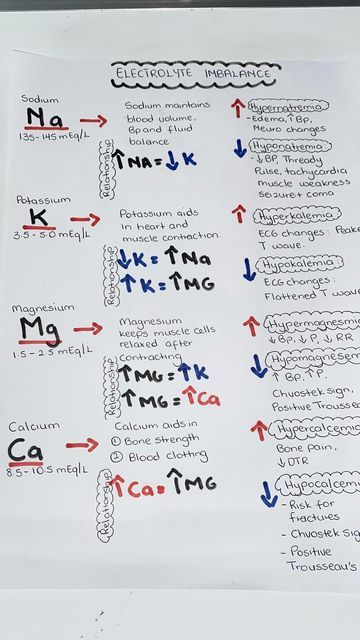 ELECTROLYTE IMBALANCE
Sodium
Na
135-145 mEq/L
Sodium maintains
blood volume,
Bp and fluid
balance
Relationship
↑NA=↓K
↑ Hypernatremia
- Edema, ↑Bp,
Neuro changes
↓ Hyponatremia
- ↓BP, Thready
Pulse, tachycardia
muscle weakness
seizure + coma
Potassium
K
3.5-5.0 mEq/L
Potassium aids
in heart and
muscle contraction.
Relationship
↓K=↑Na
↑K=↑MG
↑ Hyperkalemia
ECG changes: Peake
T wave.
↓ Hypokalemia
ECG changes:
Flattened T wav
Magnesium
Mg
1.5-2.5 mEq/L
Magnesium
keeps muscle cells
relaxed after
contracting
Relationship
↑MG=↑K
↑MG=↑Ca
↑ Hypermagnesmi
↓BP, ↓P, ↓RR
↓ Hypomagnesem
↑BP, ↑P.
Chvostek sign,
Positive Trousseau
Calcium
Ca
8.5-10.5 mEq/L
Calcium aids in
① Bone strength
② Blood clotting
Relationship
↑Ca=↑MG
↑ Hypercalcemia
Bone pain,
↓DTR
↓ Hypocalcemi
- Risk for
fractures
- Chvostek Sig
- Positive
Trousseau's